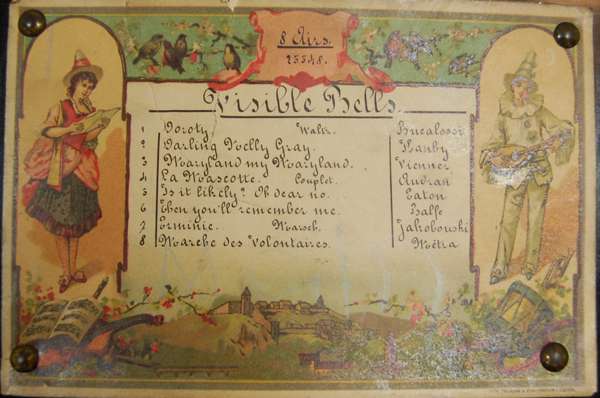 8 Airs.
25548.
Visible Bells
1 Doroty Waltz. Bucalossi
2 Darling Nelly Gray. Hanby
3 Maryland my Maryland. Vienner
4 La Mascotte. Couplet. Audran
5 Is it likely? Oh dear no. Eaton
6 Then you'll remember me. Balfe
7 Erminie. Marsch. Jakobowski
8 Marche des Volontaires. Métra